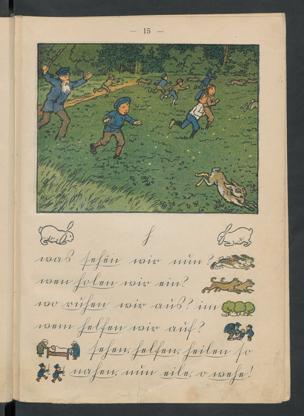 — 15 —
h
was sehen wir nun?
wen holen wir ein?
wo ruhen wir aus? im
wem helfen wir auf?
sehen, helfen, heilen so
nahen, nun eile, o wehe!